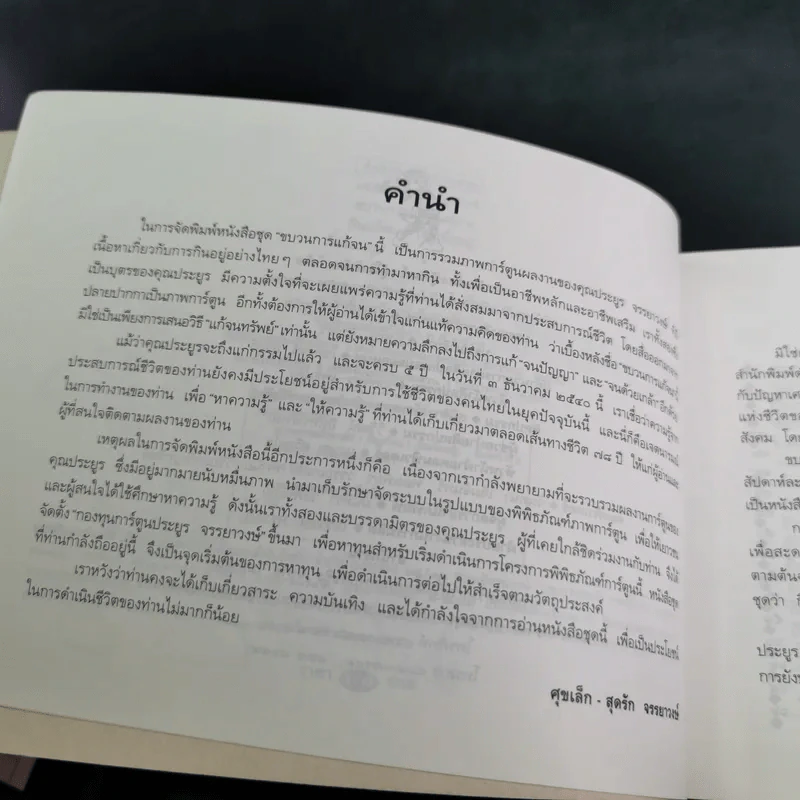 คำนำ
ในการจัดพิมพ์หนังสือชุด "ขบวนการแก้จน" นี้ เป็นการรวมภาพการ์ตูนผลงานของคุณประยูร จรรยาวงษ์
เนื้อหาเกี่ยวกับการกินอยู่อย่างไทย ๆ ตลอดจนการทำมาหากิน ทั้งเพื่อเป็นอาชีพหลักและอาชีพเสริม เราทั้งสอง
เป็นบุตรของคุณประยูร มีความตั้งใจที่จะเผยแพร่ความรู้ที่ท่านได้สั่งสมมาจากประสบการณ์ชีวิต โดยสื่อออกมาจาก
ปลายปากกาเป็นภาพการ์ตูน อีกทั้งต้องการให้ผู้อ่านได้เข้าใจแก่นแท้ความคิดของท่าน ว่าเบื้องหลังชื่อ "ขบวนการแก้จน"
มิใช่เป็นเพียงการเสนอวิธี "แก้จนทรัพย์" เท่านั้น แต่ยังหมายความลึกลงไปถึงการแก้ "จนปัญญา" และ "จนด้วยเกล้า" อีกด้วย
แม้ว่าคุณประยูรจะถึงแก่กรรมไปแล้ว และจะครบ ๕ ปี ในวันที่ ๓ ธันวาคม ๒๕๔๐ นี้ เราเชื่อว่าความรู้จาก
ประสบการณ์ชีวิตของท่านยังคงมีประโยชน์อยู่สำหรับการใช้ชีวิตของคนไทยในยุคปัจจุบันนี้ และนี่ก็คือเจตนารมณ์
ในการทำงานของท่าน เพื่อ "หาความรู้" และ "ให้ความรู้" ที่ท่านได้เก็บเกี่ยวมาตลอดเส้นทางชีวิต ๗๘ ปี ให้แก่ผู้อ่านและ
ผู้ที่สนใจติดตามผลงานของท่าน
เหตุผลในการจัดพิมพ์หนังสือนี้อีกประการหนึ่งก็คือ เนื่องจากเรากำลังพยายามที่จะรวบรวมผลงานการ์ตูนของ
คุณประยูร ซึ่งมีอยู่มากมายนับหมื่นภาพ นำมาเก็บรักษาจัดระบบในรูปแบบของพิพิธภัณฑ์ภาพการ์ตูน เพื่อให้เยาวชน
และผู้สนใจได้ใช้ศึกษาหาความรู้ ดังนั้นเราทั้งสองและบรรดามิตรของคุณประยูร ผู้ที่เคยใกล้ชิดร่วมงานกับท่าน จึงได้
จัดตั้ง "กองทุนการ์ตูนประยูร จรรยาวงษ์" ขึ้นมา เพื่อหาทุนสำหรับเริ่มดำเนินการโครงการพิพิธภัณฑ์การ์ตูนนี้ หนังสือชุด
ที่ท่านกำลังถืออยู่นี้ จึงเป็นจุดเริ่มต้นของการหาทุน เพื่อดำเนินการต่อไปให้สำเร็จตามวัตถุประสงค์
เราหวังว่าท่านคงจะได้เก็บเกี่ยวสาระ ความบันเทิง และได้กำลังใจจากการอ่านหนังสือชุดนี้ เพื่อเป็นประโยชน์
ในการดำเนินชีวิตของท่านไม่มากก็น้อย
ศุขเล็ก - สุดรัก จรรยาวงษ์
มิใช่
สำนักพิมพ์
กับปัญหาเศ
แห่งชีวิต
สังคม โดย
ขบ
สัปดาห์ละ
เป็นหนังสือ
ก
เพื่อสะด
ตามต้น
ชุดว่า
ประยูร
การยัง